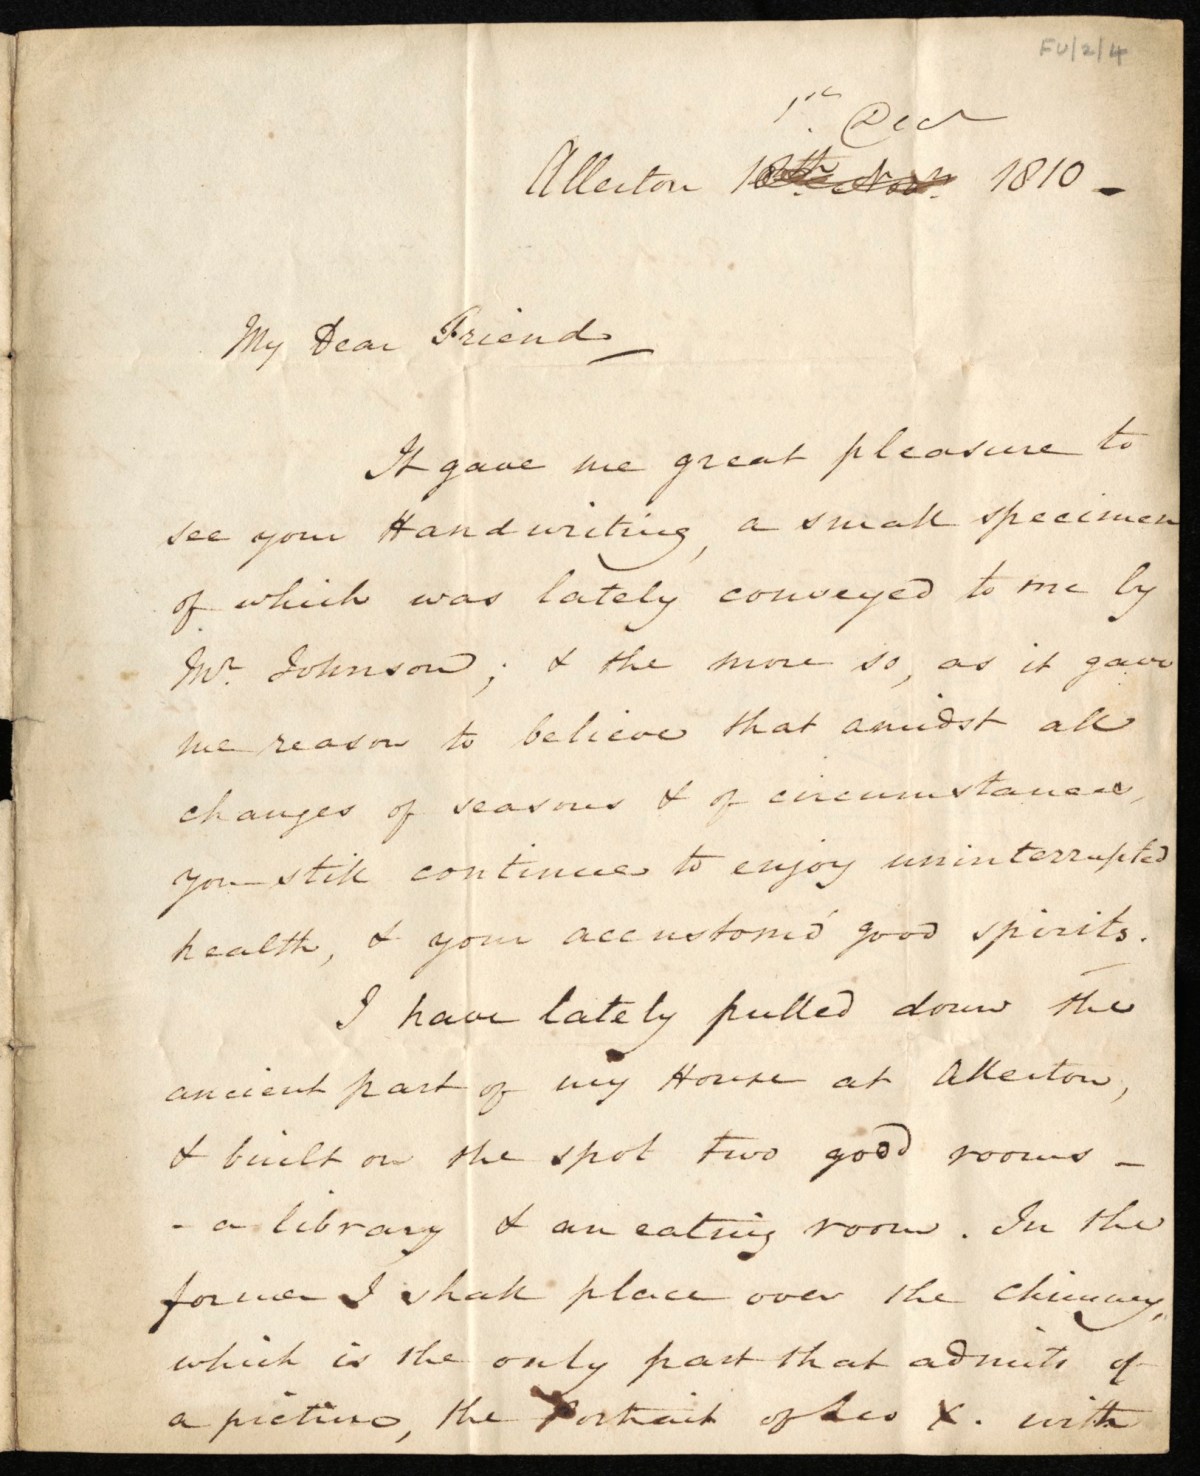 FU/2/4
1st. Decr
Allerton 18th. Novr. 1810 -
My Dear Friend
It gave me great pleasure to
see your Handwriting, a small specimen
of which was lately conveyed to me by
Mr. Johnson; & the more so, as it gave
me reason to believe that amidst all
changes of seasons & of circumstances,
you still continue to enjoy uninterrupted
health, & your accustom'd good spirits.
I have lately pulled down the
ancient part of my House at Allerton,
& built on the spot two good rooms -
- a library & an eating room. In the
former I shall place over the chimney,
which is the only part that admits of
a picture, the Portrait of Leo X. with